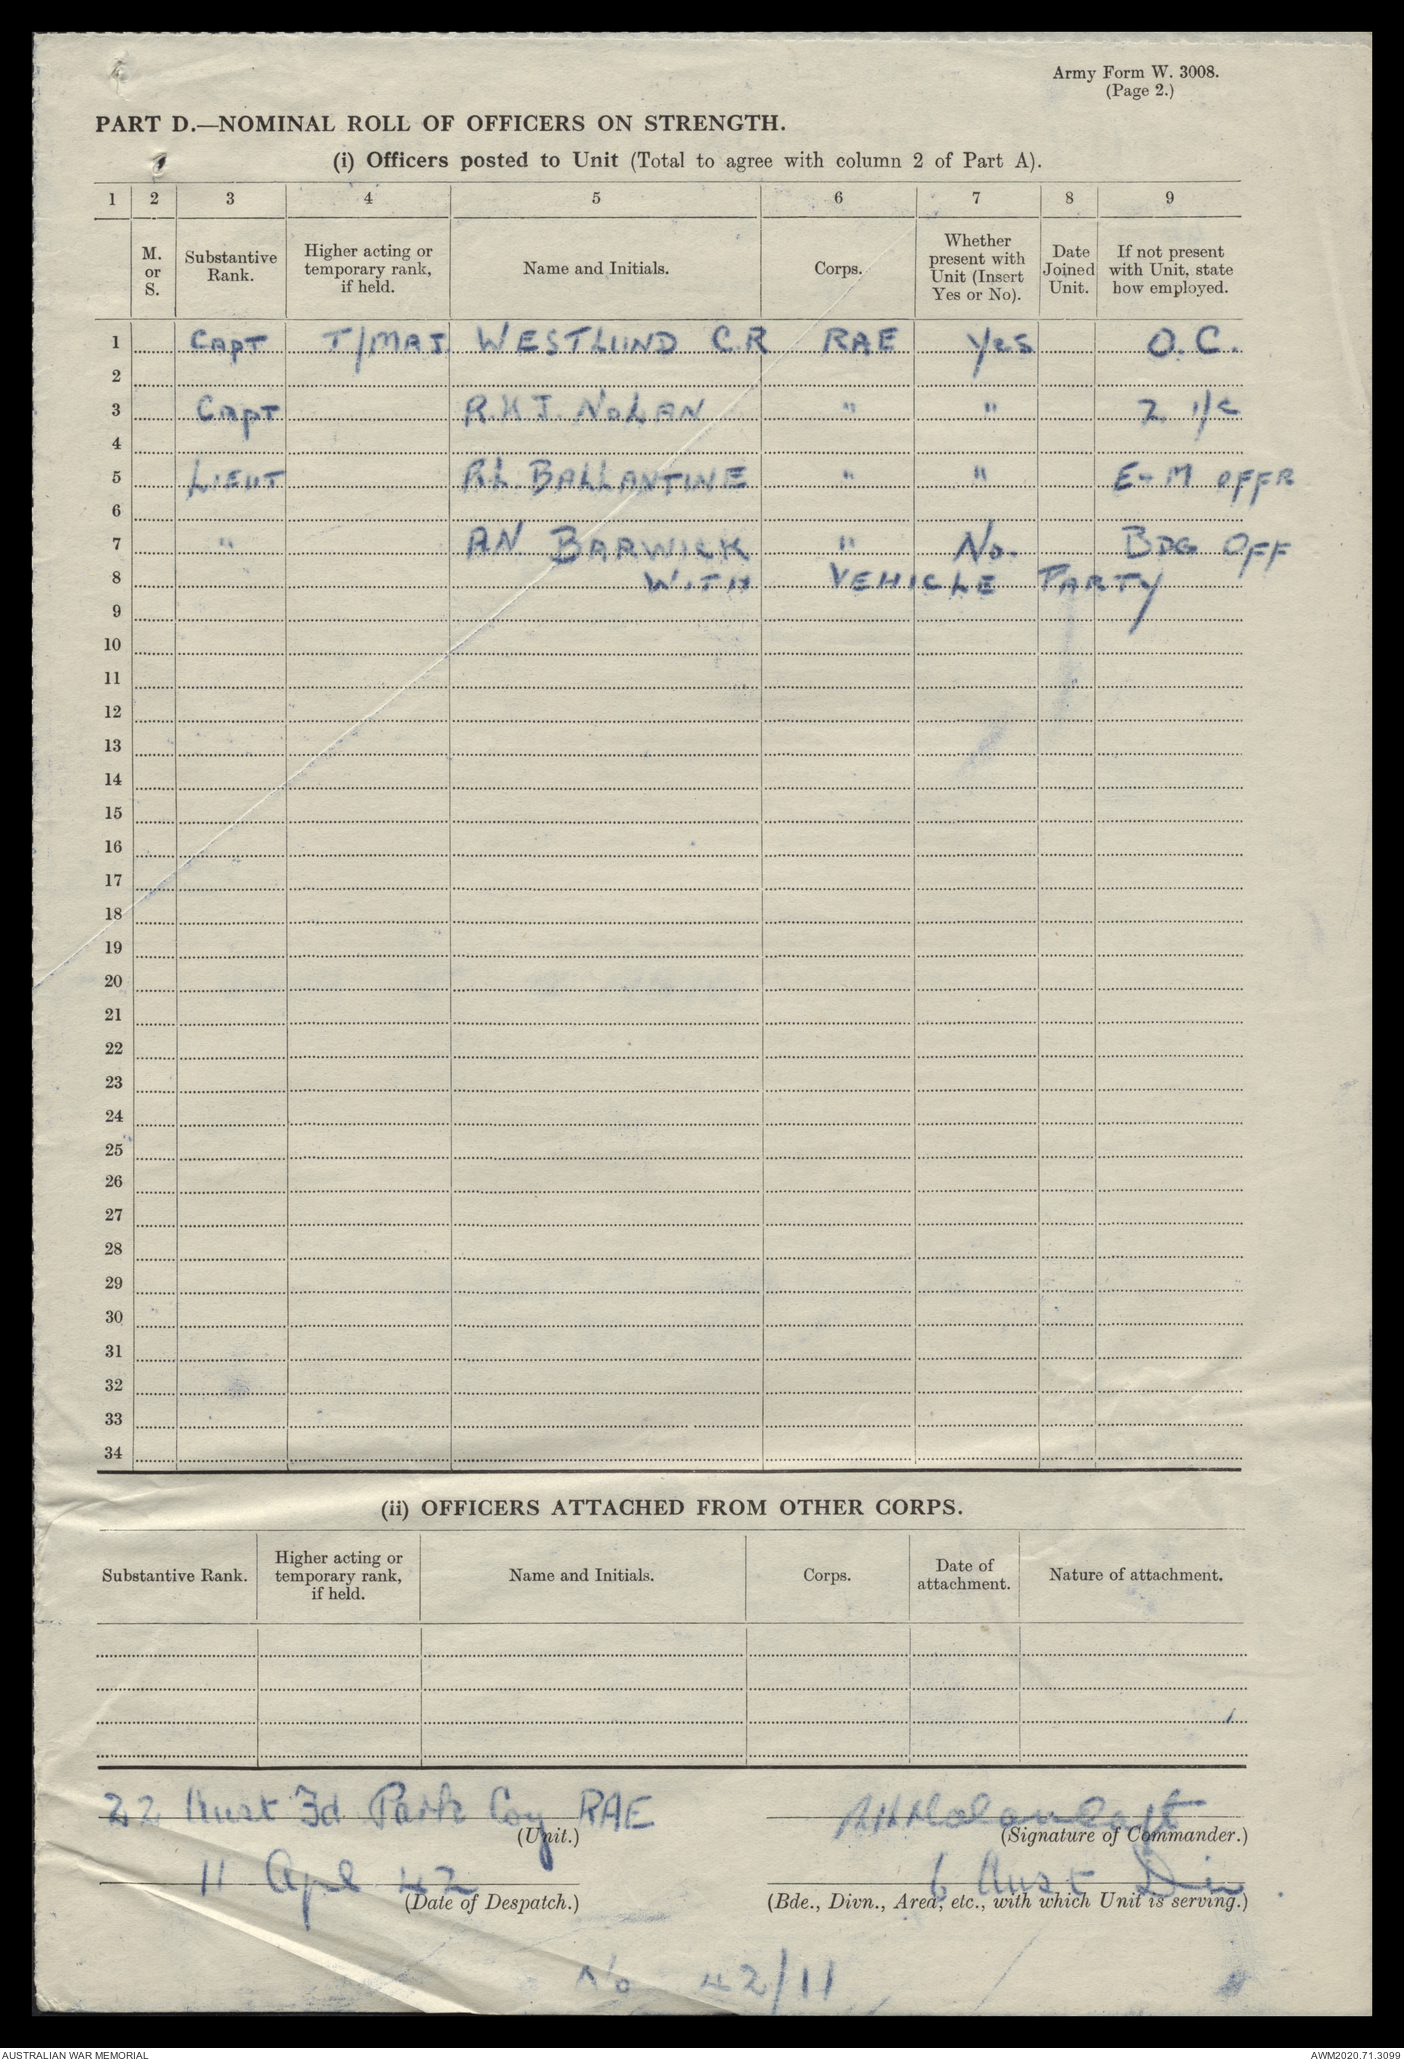 Army Form W. 3008.
(Page 2.)
PART D.—NOMINAL ROLL OF OFFICERS ON STRENGTH.
(i) Officers posted to Unit (Total to agree with column 2 of Part A).
1 2 3 4 5 6 7 8 9
M. or S. Substantive Rank. Higher acting or temporary rank, if held. Name and Initials. Corps. Whether present with Unit (Insert Yes or No). Date Joined Unit. If not present with Unit, state how employed.
1 CAPT T/MAJ WESTLUND C.R RAE Yes O.C.
2
3 CAPT R.H.J. NOLAN " " 2 i/c
4
5 LIEUT R.L. BALLANTINE " " E+M OFFR
6
7 " A.N. BARWICK " No. BDG OFF
8 WITH VEHICLE PARTY
9
10
11
12
13
14
15
16
17
18
19
20
21
22
23
24
25
26
27
28
29
30
31
32
33
34
(ii) OFFICERS ATTACHED FROM OTHER CORPS.
Substantive Rank. Higher acting or temporary rank, if held. Name and Initials. Corps. Date of attachment. Nature of attachment.
22 Aust Fd Park Coy RAE Nolan Capt
(Unit.) (Signature of Commander.)
11 Apl 42 6 Aust Div
(Date of Despatch.) (Bde., Divn., Area, etc., with which Unit is serving.)
No 42/11
AUSTRALIAN WAR MEMORIAL AWM2020.71.3099